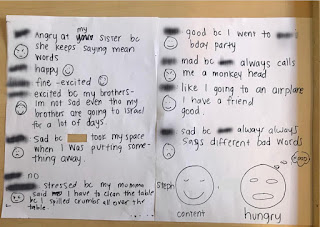 Angry at my sister bc
she keeps saying mean
words
happy
fine - excited
excited bc my brothers-
im not sad even tho my
brothers are going to Israel
for a lot of days.
sad bc took my space
when I was putting some-
thing away.
no
stressed bc my momma
said I have to clean the table
bc I spilled crumbs all over the
table.
good bc I went to
bday party
mad bc always calls
me a monkey head
like I going to an airplane
I have a friend
good.
sad bc always always
says different bad words
food
steph
content
hungry